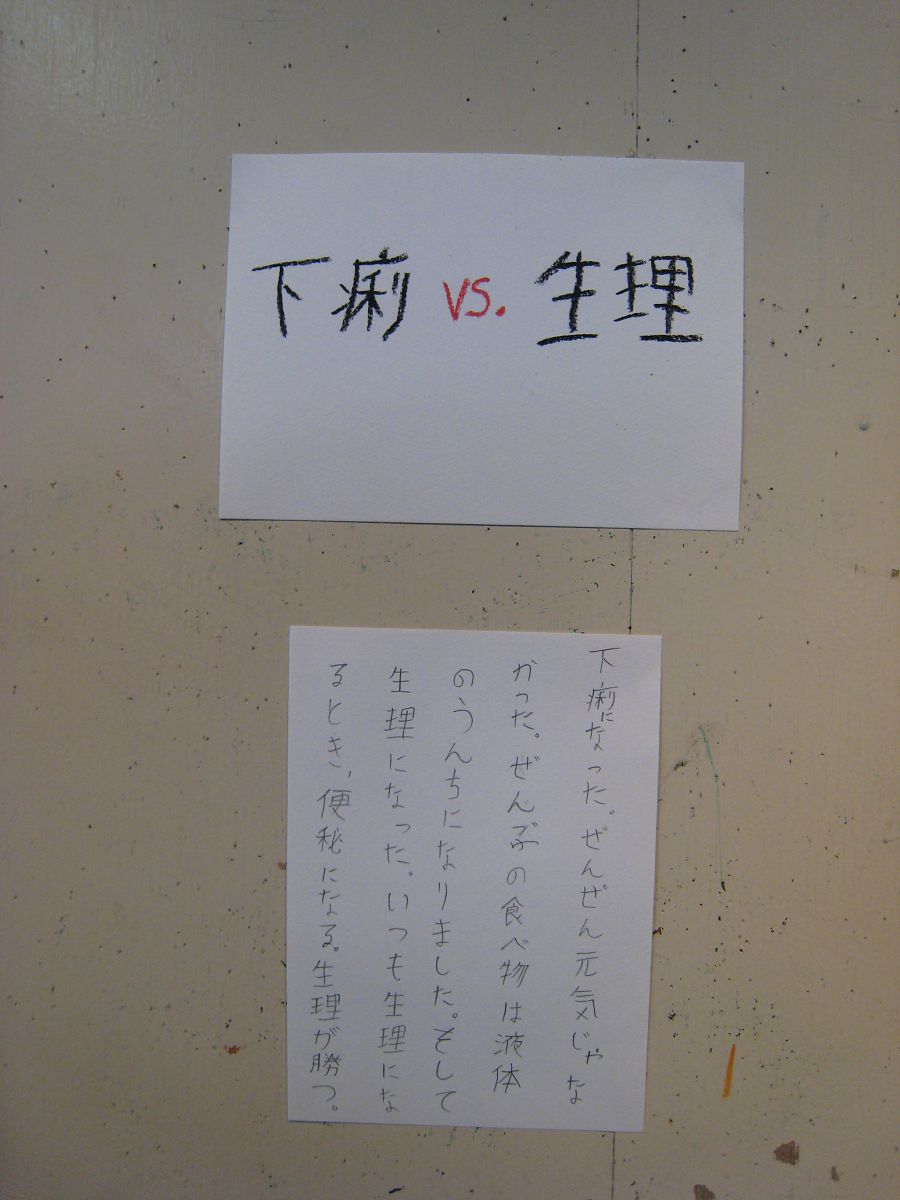 下痢 vs. 生理
下痢になった。ぜんぜん元気じゃな
かった。ぜんぶの食べ物は液体
のうんちになりました。そして
生理になった。いつも生理にな
るとき、便秘になる。生理が勝つ。